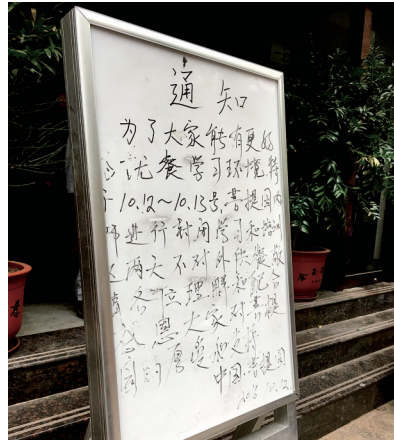 通知
为了大家能有更好
优餐学习环境,特
10.12~10.13号,菩提园内
师进行封闭学习和培训
这两天不对外供餐,敬
请各位理解并配合
感恩大家对菩提
园的厚爱和支持
中国·菩提园
10.12